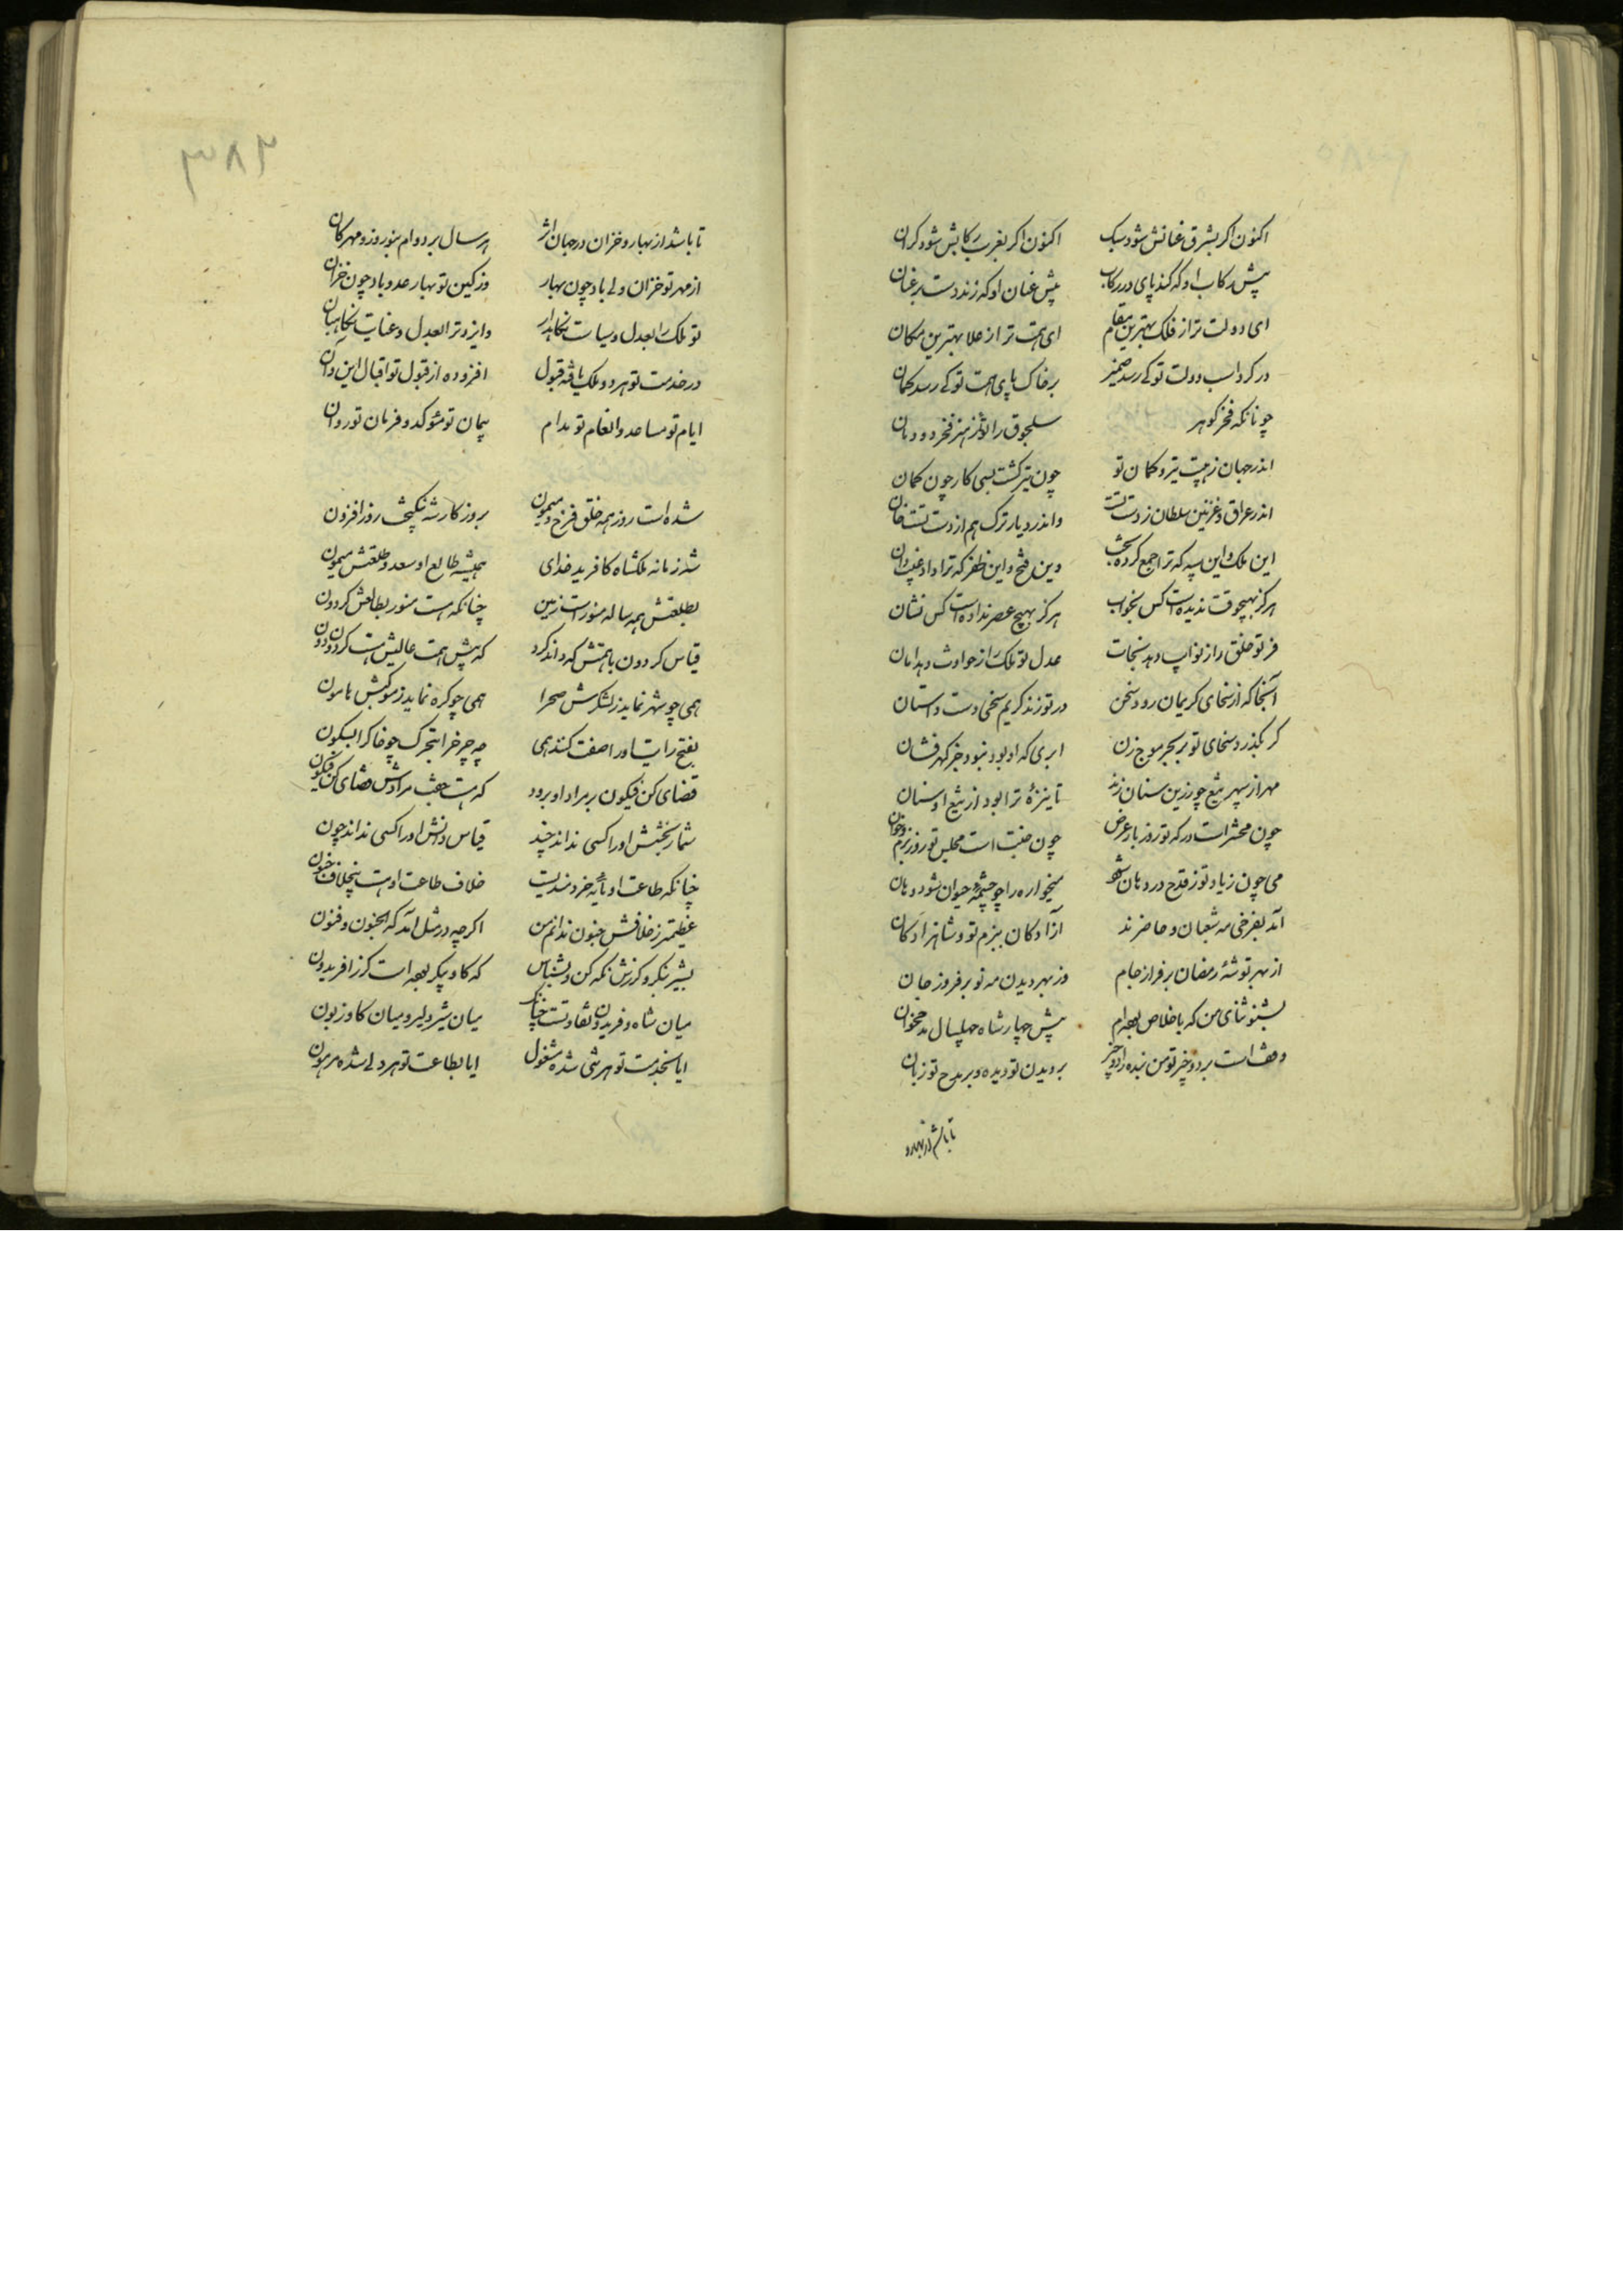 اکنون اگر بشرق عنانش شود سبک اکنون اگر بغرب رکابش شود گران
پیش رکاب او که کند پای در رکاب پیش عنان او که زند دست در عنان
ای دولت ترا ز فلک بهترین مقام ای همت ترا ز علا بهترین مکان
در گرد اسب دولت تو کی رسد ضمیر بر خاک پای همت تو کی رسد گمان
چونانکه فخر گوهر سلجوق را بتو ز هنر فخر دودمان
اندر جهان ز هیبت تیر و کمان تو چون تیر گشت بسی کار چون کمان
اندر عراق و غزنین سلطان ز دست تست واندر دیار ترک هم از دست تست خان
این ملک و این سپه که ترا جمع کرد بخت وین فتح و این ظفر که ترا داد غیب دان
هرگز بهیچوقت ندیده است کس بخواب هرگز بهیچ عصر نداده است کس نشان
فر تو خلق را ز نوایب دهد نجات عدل تو ملک را ز حوادث دهد امان
آنجا که از سخای کریمان رود سخن در تو زند کریم سخی دست داستان
گر بگذرد سخای تو بر بحر موج زن ابری که او بود نبود جز گهر فشان
مهر از سپهر تیغ چو زرین سنان زند تا نیزه ترا بود از تیغ او سنان
چون محشر است درگه تو روز بار عرض چون جنت است مجلس تو روز بزم و خوان
می چون ز یاد تو ز قدح در دهان شود میخواره را چو چشمه حیوان شود دهان
آمد بفرخی مه شعبان و حاضرند آزادگان ببزم تو و شاهزادگان
از بهر توشه رمضان بر فراز جام وز بهر دیدن مه نو بر فروز جان
بشنو ثنای من که باخلاص بهرام پیش چهار شاه چهلسال مدح خوان
وقف است بر دو چیز تو من بنده را دو چیز بر دیدن تو دیده و بر مدح تو زبان
تا باشد از بهار و
۳۸۲
تا باشد از بهار و خزان در جهان اثر هر سال بر دوام بنوروز و مهرگان
از مهر تو خزان ولی باد چون بهار وز کین تو بهار عدو باد چون خزان
تو ملک را بعدل و سیاست نگاهدار وایزد ترا بعدل و عنایت نگاهبان
در خدمت تو هر دو ملک یافته قبول افزوده از قبول تو اقبال این و آن
ایام تو مساعد و انعام تو مدام پیمان تو مؤکد و فرمان تو روان
شده است روز همه خلق فرخ و میمون بروزگار شه نیکبخت روز افزون
شه زمانه ملکشاه کافرید خدای همیشه طالع او سعد و طلعتش میمون
بطلعتش همه ساله منور است زمین چنانکه هست منور بطالعش گردون
قیاس گردون با همتش که داند کرد که پیش همت عالیش هست گردون دون
همی چو شهر نماید ز لشکرش صحرا همی چو کوه نماید ز موکبش هامون
بفتح رایت او را صفت کند همی چه چرخ را بتحرک چو خاک را بسکون
قضای کن فیکون بر مراد او برود که هست جفت مرادش قضای کن فیکون
شمار بخشش او را کسی نداند چند قیاس دانش او را کسی نداند چون
چنانکه طاعت او مایه خردمندیست خلاف طاعت او هست بیخلاف جنون
عظیمتر ز خلافش جنون ندانم من اگرچه در مثل آمد که الجنون و فنون
بشیر بنگر و گرزش نگه کن و بشناس که گاو پیکر بهتر است گرز افریدون
میان شاه و فریدون تفاوتست چنانک میان شیر دلیر و میان گاو زبون
ایا بخدمت تو هر تنی شده مشغول ایا بطاعت تو هر دلی شده مرهون